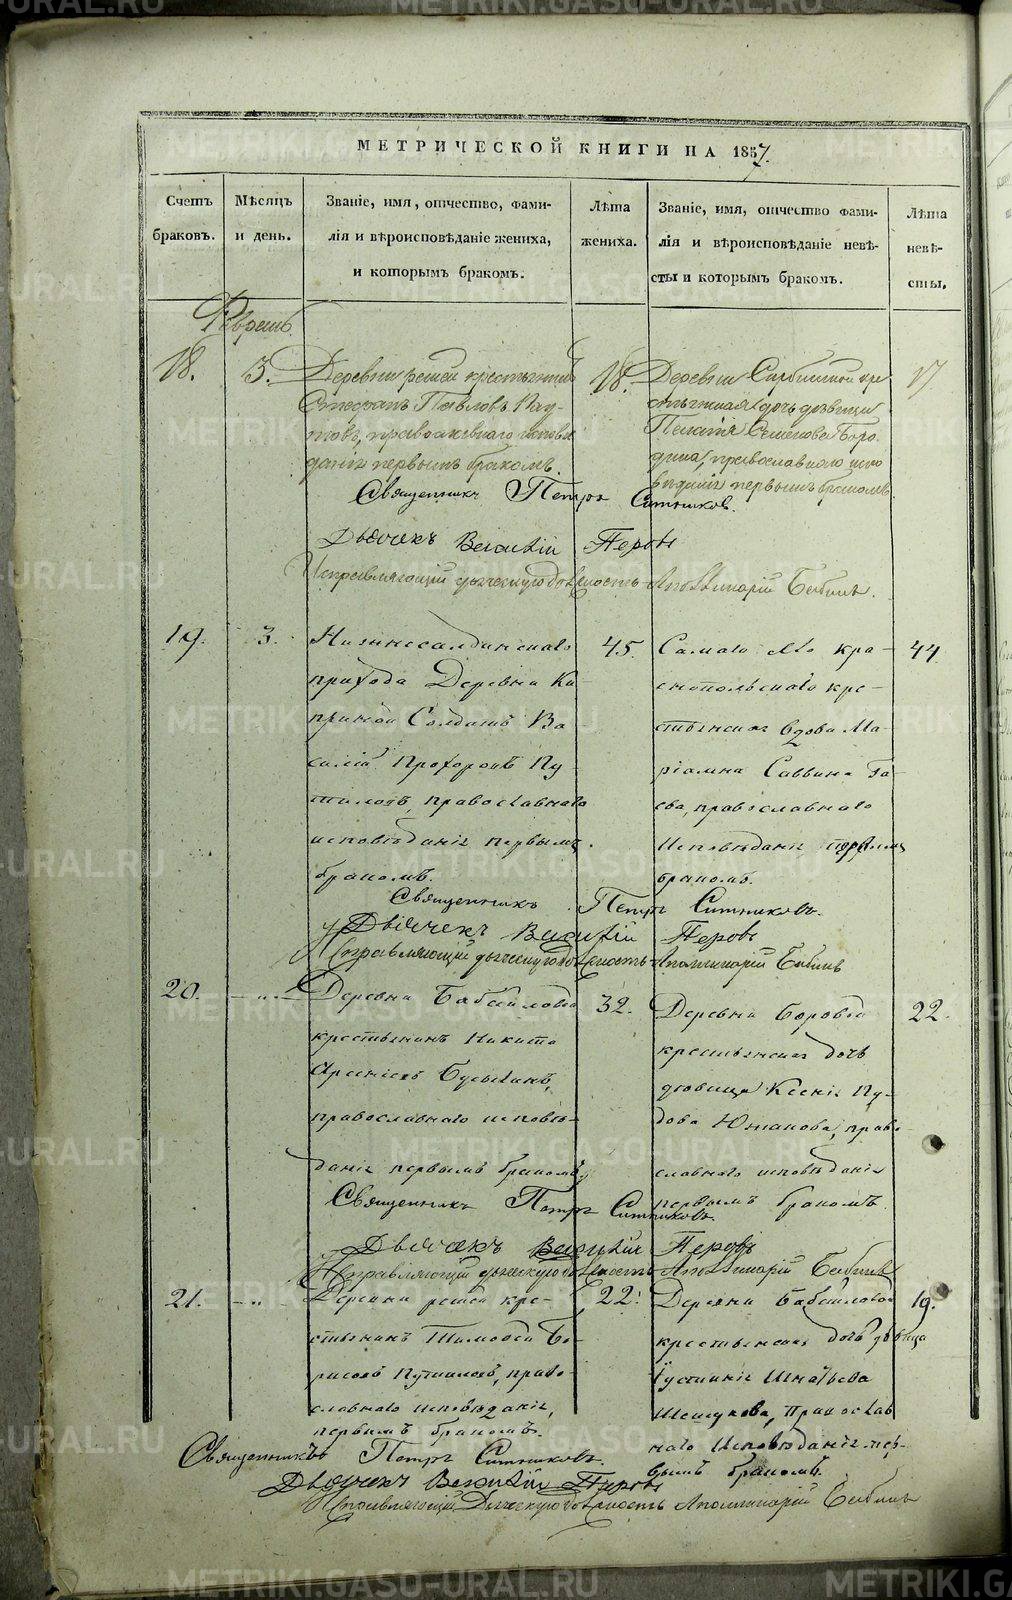 МЕТРИЧЕСКОЙ КНИГИ НА 1857.
Счетъ
браковъ.
Мѣсяцъ
и день.
Званіе, имя, отчество, фами-
лія и вѣроисповѣданіе жениха,
и которымъ бракомъ.
Лѣта
жениха.
Званіе, имя, отчество фами-
лія и вѣроисповѣданіе невѣ-
сты и которымъ бракомъ.
Лѣта
невѣ-
сты.
18.
3.
Деревни крестьянинъ
Стефанъ Павловъ
православнаго исповѣ
данія первымъ бракомъ.
18.
Деревни кре
стьянская дочь дѣвица
Пелагія Семенова Боро-
дина, православнаго испо
вѣданія первымъ бракомъ
17
Священникъ Петръ Ситниковъ.
Дьячекъ Перовъ
Исправляющій должность Аполлинарій Бабинъ.
19.
3.
Нижнесалдинскаго
прихода Деревни Ка
Солдатъ Ва
силій Прохоровъ Пу-
тиловъ, православнаго
исповѣданія первымъ
бракомъ.
45.
Самаго кра-
снопольскаго кре-
стьянская вдова Ма-
ріамна Саввина Га-
ева, православнаго
Исповѣданія
бракомъ.
44
Священникъ Петръ Ситниковъ.
Дьячекъ Перовъ
Исправляющій должность Аполлинарій Бабинъ
20.
- " -
Деревни Бабайловой
крестьянинъ Никита
православнаго исповѣ-
данія первымъ бракомъ,
32.
Деревни Боровой
крестьянская дочь
дѣвица Ксенія Пу-
дова Южакова, право-
славнаго исповѣданія
первымъ бракомъ.
22.
Священникъ Петръ Ситниковъ.
Дьячекъ Перовъ
Исправляющій должность Аполлинарій Бабинъ
21.
- " -
Деревни кре-
стьянинъ Тимофей Бо-
рисовъ Путиловъ, право-
славнаго исповѣданія,
первымъ бракомъ.
22.
Деревни Бабайловой
крестьянская дочь дѣвица
Їустинія Игнатьева
православ
наго Исповѣданія пер-
вымъ бракомъ.
19.
Священникъ Петръ Ситниковъ.
Дьячекъ Перовъ
Исправляющій должность Аполлинарій Бабинъ
METRIKI.GASO-URAL.RU